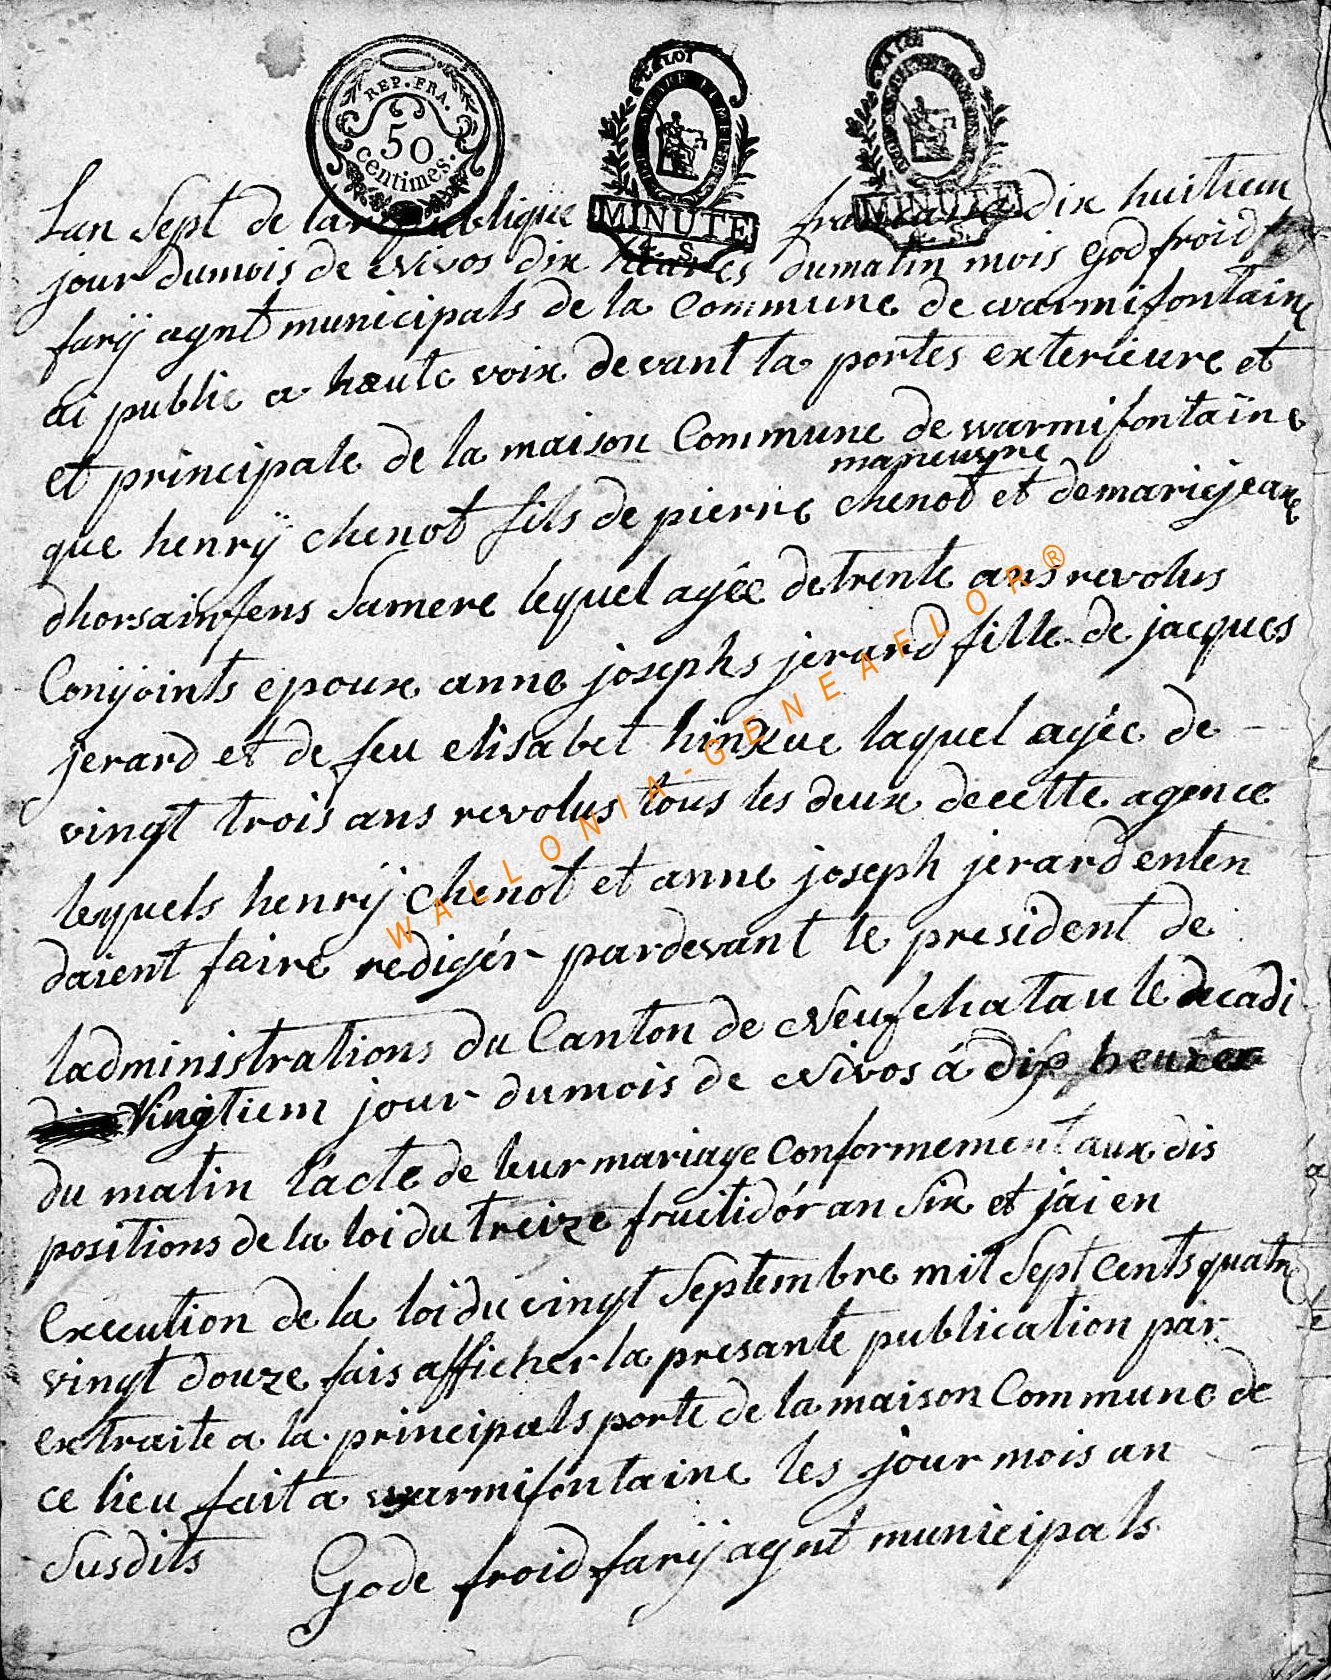 REP. FRA.
50
centimes.
LA LOI
MINUTE
4. S.
LA LOI
MINUTE
4. S.
Lan Sept de la republique francaise dix huitiem
jour dumois de Nivos dix heures dumatin mois Godfroid
farÿ agnt municipals de la Commune de warmifontaine
ai public a haute voix devant la portes exterieure et
et principale de la maison Commune de warmifontaïne
maneuvre
que henrÿ chenot fils de pierre chenot et demariejeane
dhorsainfens Samere lequel agée detrente ans revolus
Conjoints epoux anne josephs jerard fille de jacques
jerard et de feu elisabet hinkue laquel agée de
vingt trois ans revolus tous les deux decette agence
lequels henrÿ chenot et anne joseph jerard enten
daient faire redigér pardevant le president de
ladministrations du Canton de Neufchatau le decadi
Vingtiem jour dumois de Nivos á dix heures
du matin lácte de leur mariage Conformement aux dis
positions de la loi du treize fruitidór an Six et jái en
Execution de la loi du vingt Septembre mil Sept Cents quatre
vingt douze fais afficher la presante publication par
extraite a la principals porte de la maison Commune de
ce lieu fait a warmifontaine les jour mois an
Susdits
Gode froid farÿ agnt municipals
WALLONIA-GENEAFLOR®